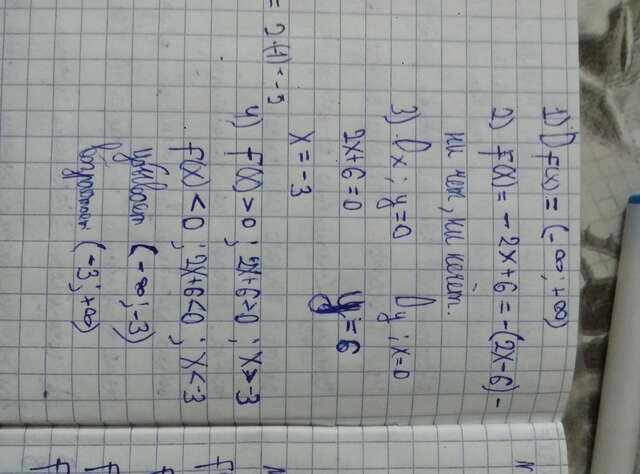 1) D f(x) = (-∞; +∞)
2) f(x) = -2x+6 = -(2x-6) -
ни чет, ни нечет.
3) Ox; y=0 Oy; x=0
2x+6=0 y=6
x = -3
4) f(x)>0; 2x+6>0; x>-3
f(x)<0; 2x+6<0; x<-3
убывает (-∞; -3)
возрастает (-3; +∞)